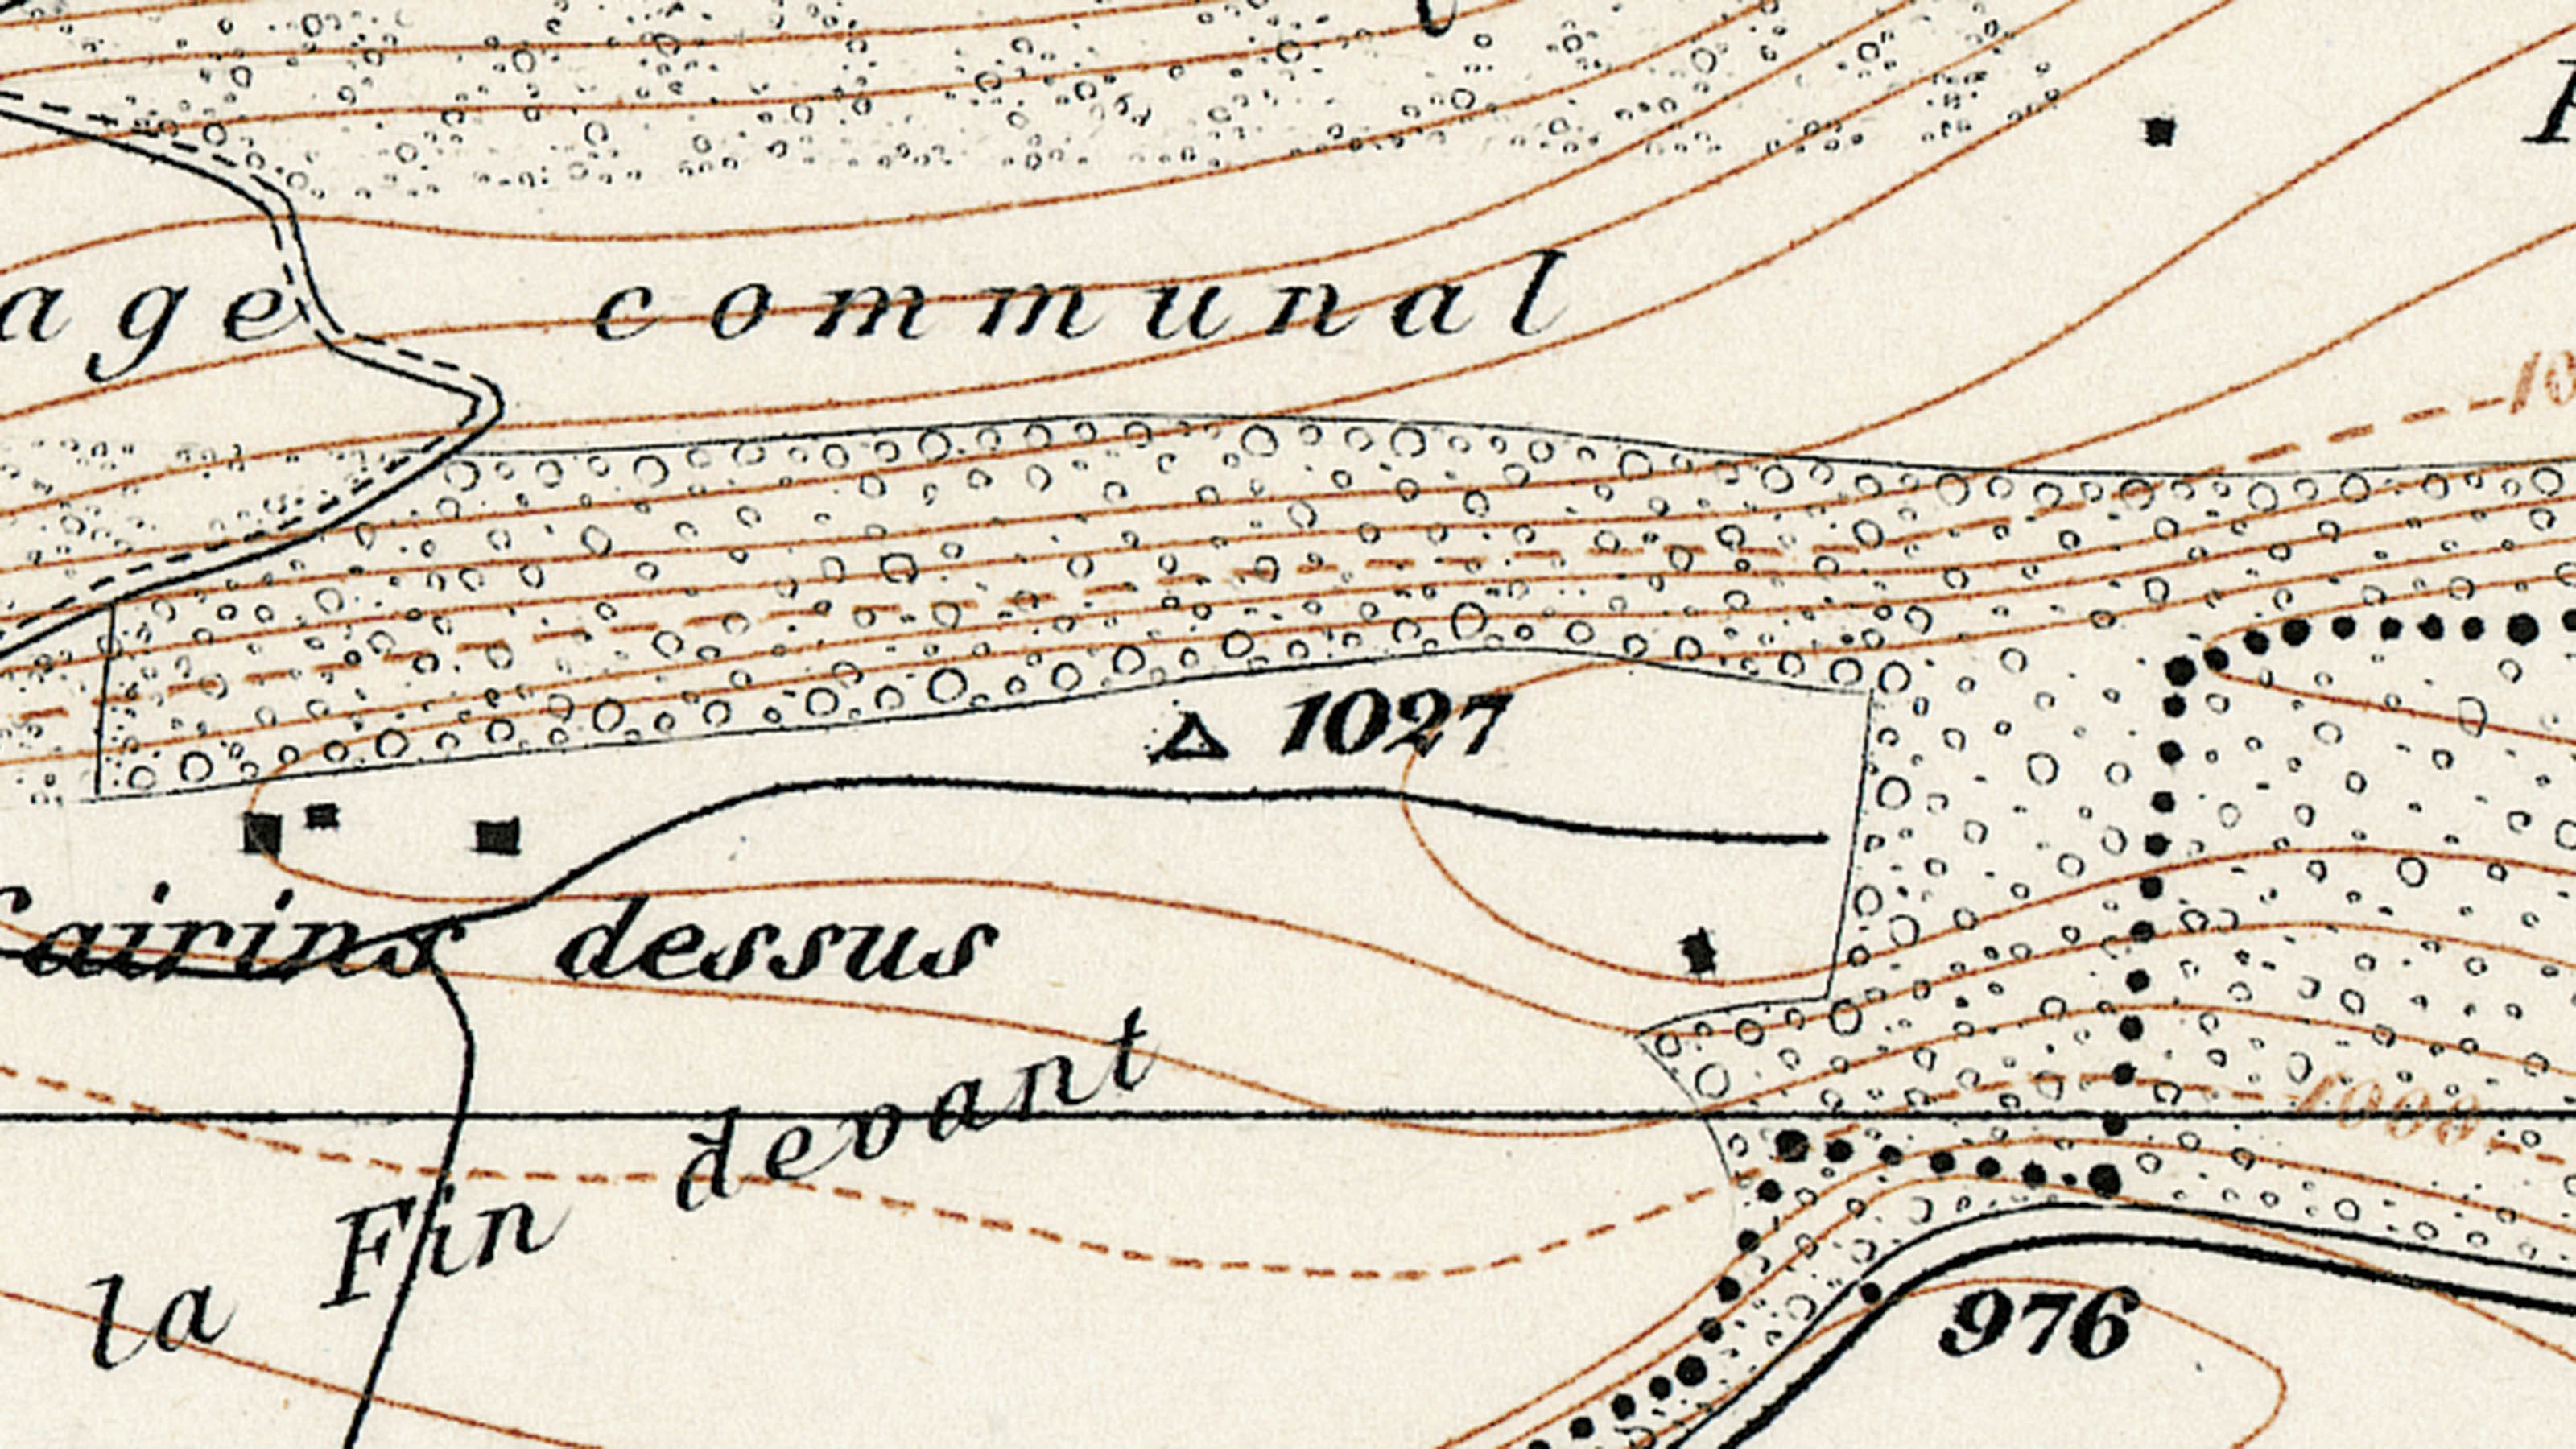 age communal
1027
Cairins dessus
devant
la Fin
1000
976